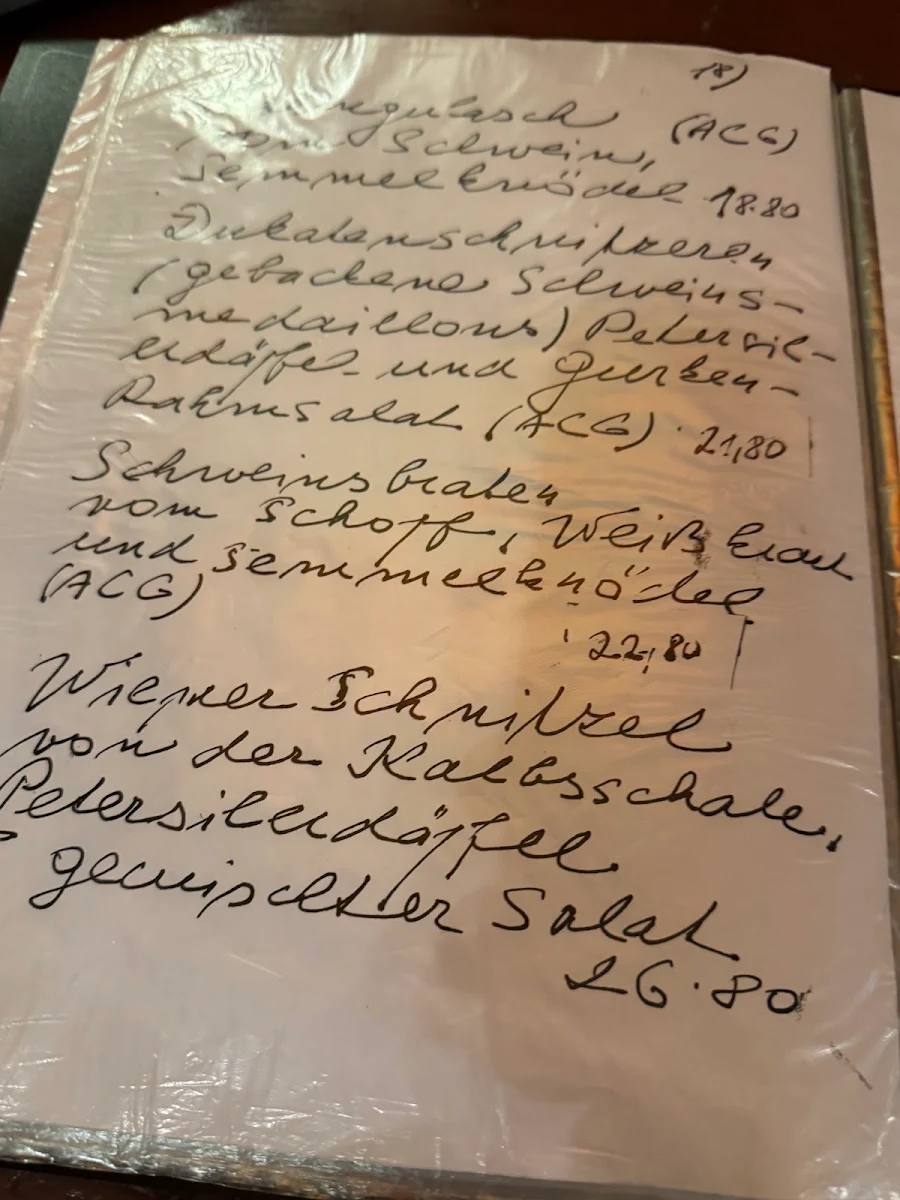 18)
gulasch (ACG)
Schwein,
Semmelknödel 18.80
Dukatenschnitzeren
(gebackene Schweins-
medaillons) Petersil-
erdäpfel- und Gurken-
Rahmsalat (ACG) 21,80
Schweinsbraten
vom Schopf, Weißkraut
und Semmelknödel
(ACG)
22,80
Wiener Schnitzel
von der Kalbsschale,
Petersilerdäpfel
gemischter Salat
26.80